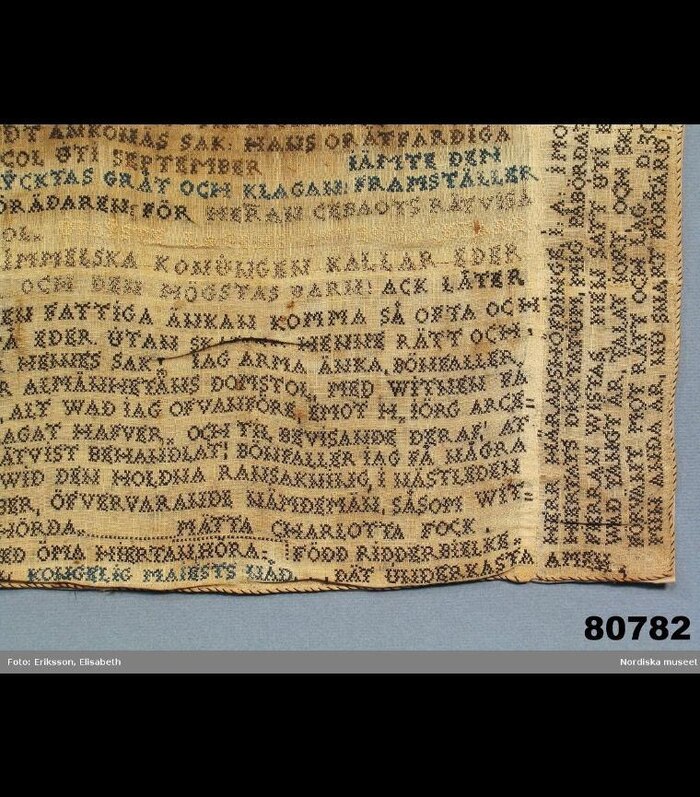 ÄNKONÄS SAK: HANS ORÄTFÄRDIGA
COL UTI SEPTEMBER IÄMTE DEN
GRÄT OCH KLAGAN: FRAMSTÄLLER
FÖR HERRAN CEBAOTS RÄTVISA
OL.
IMMELSKA KONÜNGEN KALLAR EDER
OCH DEN HÖGSTAS BARN! ACK LÄTER
EN FATTIGA ÄNKAN KOMMA SÅ OFTA OCH
TA EDER. UTAN HENNE RÄTT OCH
HENNES SAK IAG ARMA ÄNKA, BÖNFALLER
R ALMÄNHETÄNS DOMSTOL, MED WITNEN FÅ
ALT WAD IAG OFVANFÖRE, EMOT H, IÖRG ARCK
AGAT HAFVER, OCH TIL BEVISANDE DERAF, AT
ATVIST BEHANDLAT! BÖNFALLER IAG FÅ NÅGRA
WID DEN HOLDNA RANSAKNING, I NÄSTLEDEN
BER, ÖFVERVARANDE NÄMDEMÄN, SÅSOM WIT
HÖRDA MÄTTA CHARLOTTA FOCK.
ED ÖMA HIERTAN HÖRA: FÖDD RIDDERBIELKE
KONGELIG MAIESTS NÅD. DÄT UNDERKASTA
HERR HÄRADSHÖFDINGE, I.A. IMO
FIERRAN WISTAS, MEN SAFT UTI
WAD LÅNGT ÄR, WÄLAT IORT OCH
RORVÄNT MOT RÄTT OCH LAG,
MEN ÄNDA ÄR, ÄNU SNART FÖRSTÅRD,
AMEN,
80782
Foto: Eriksson, Elisabeth
Nordiska museet